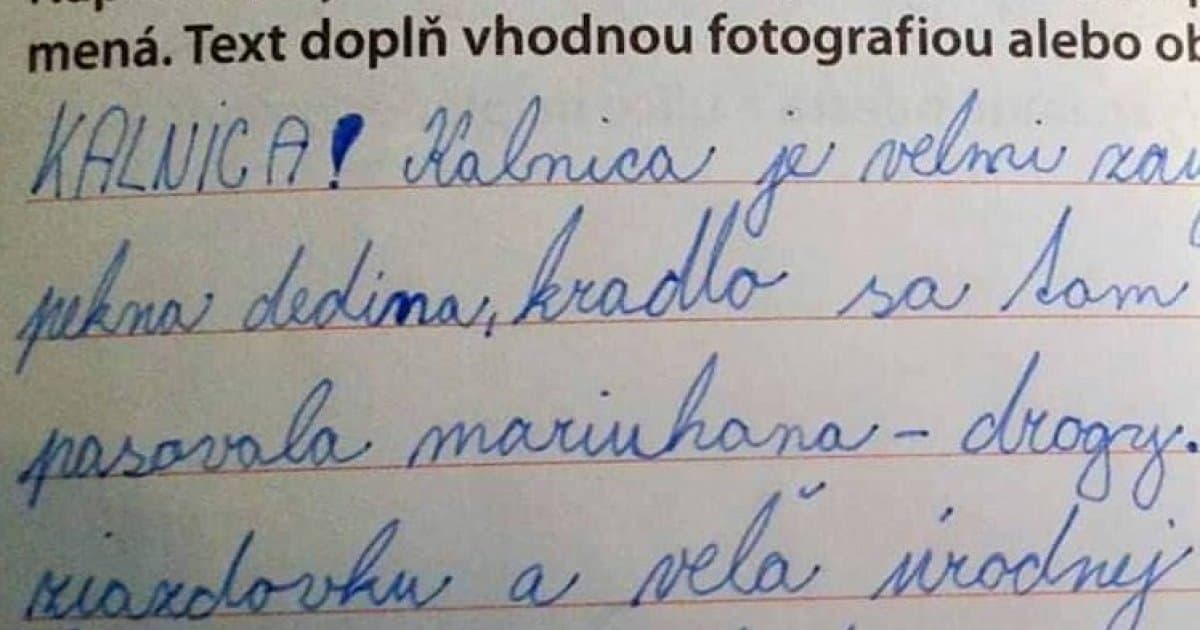 mená. Text doplň vhodnou fotografiou alebo ob
KALNICA! Kalnica je velmi zau
pekna dedina, kradlo sa tam
pasovala mariuhana - drogy.
a velǎ úrodnej